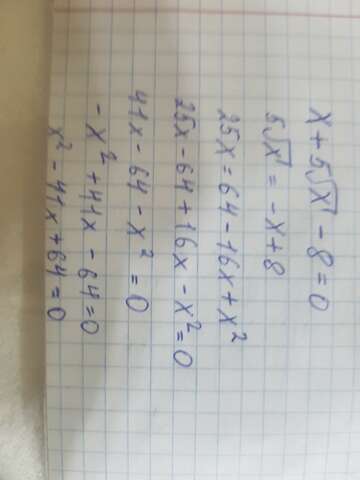 x + 5√x - 8 = 0
5√x = -x + 8
25x = 64 - 16x + x²
25x - 64 + 16x - x² = 0
41x - 64 - x² = 0
- x² + 41x - 64 = 0
x² - 41x + 64 = 0